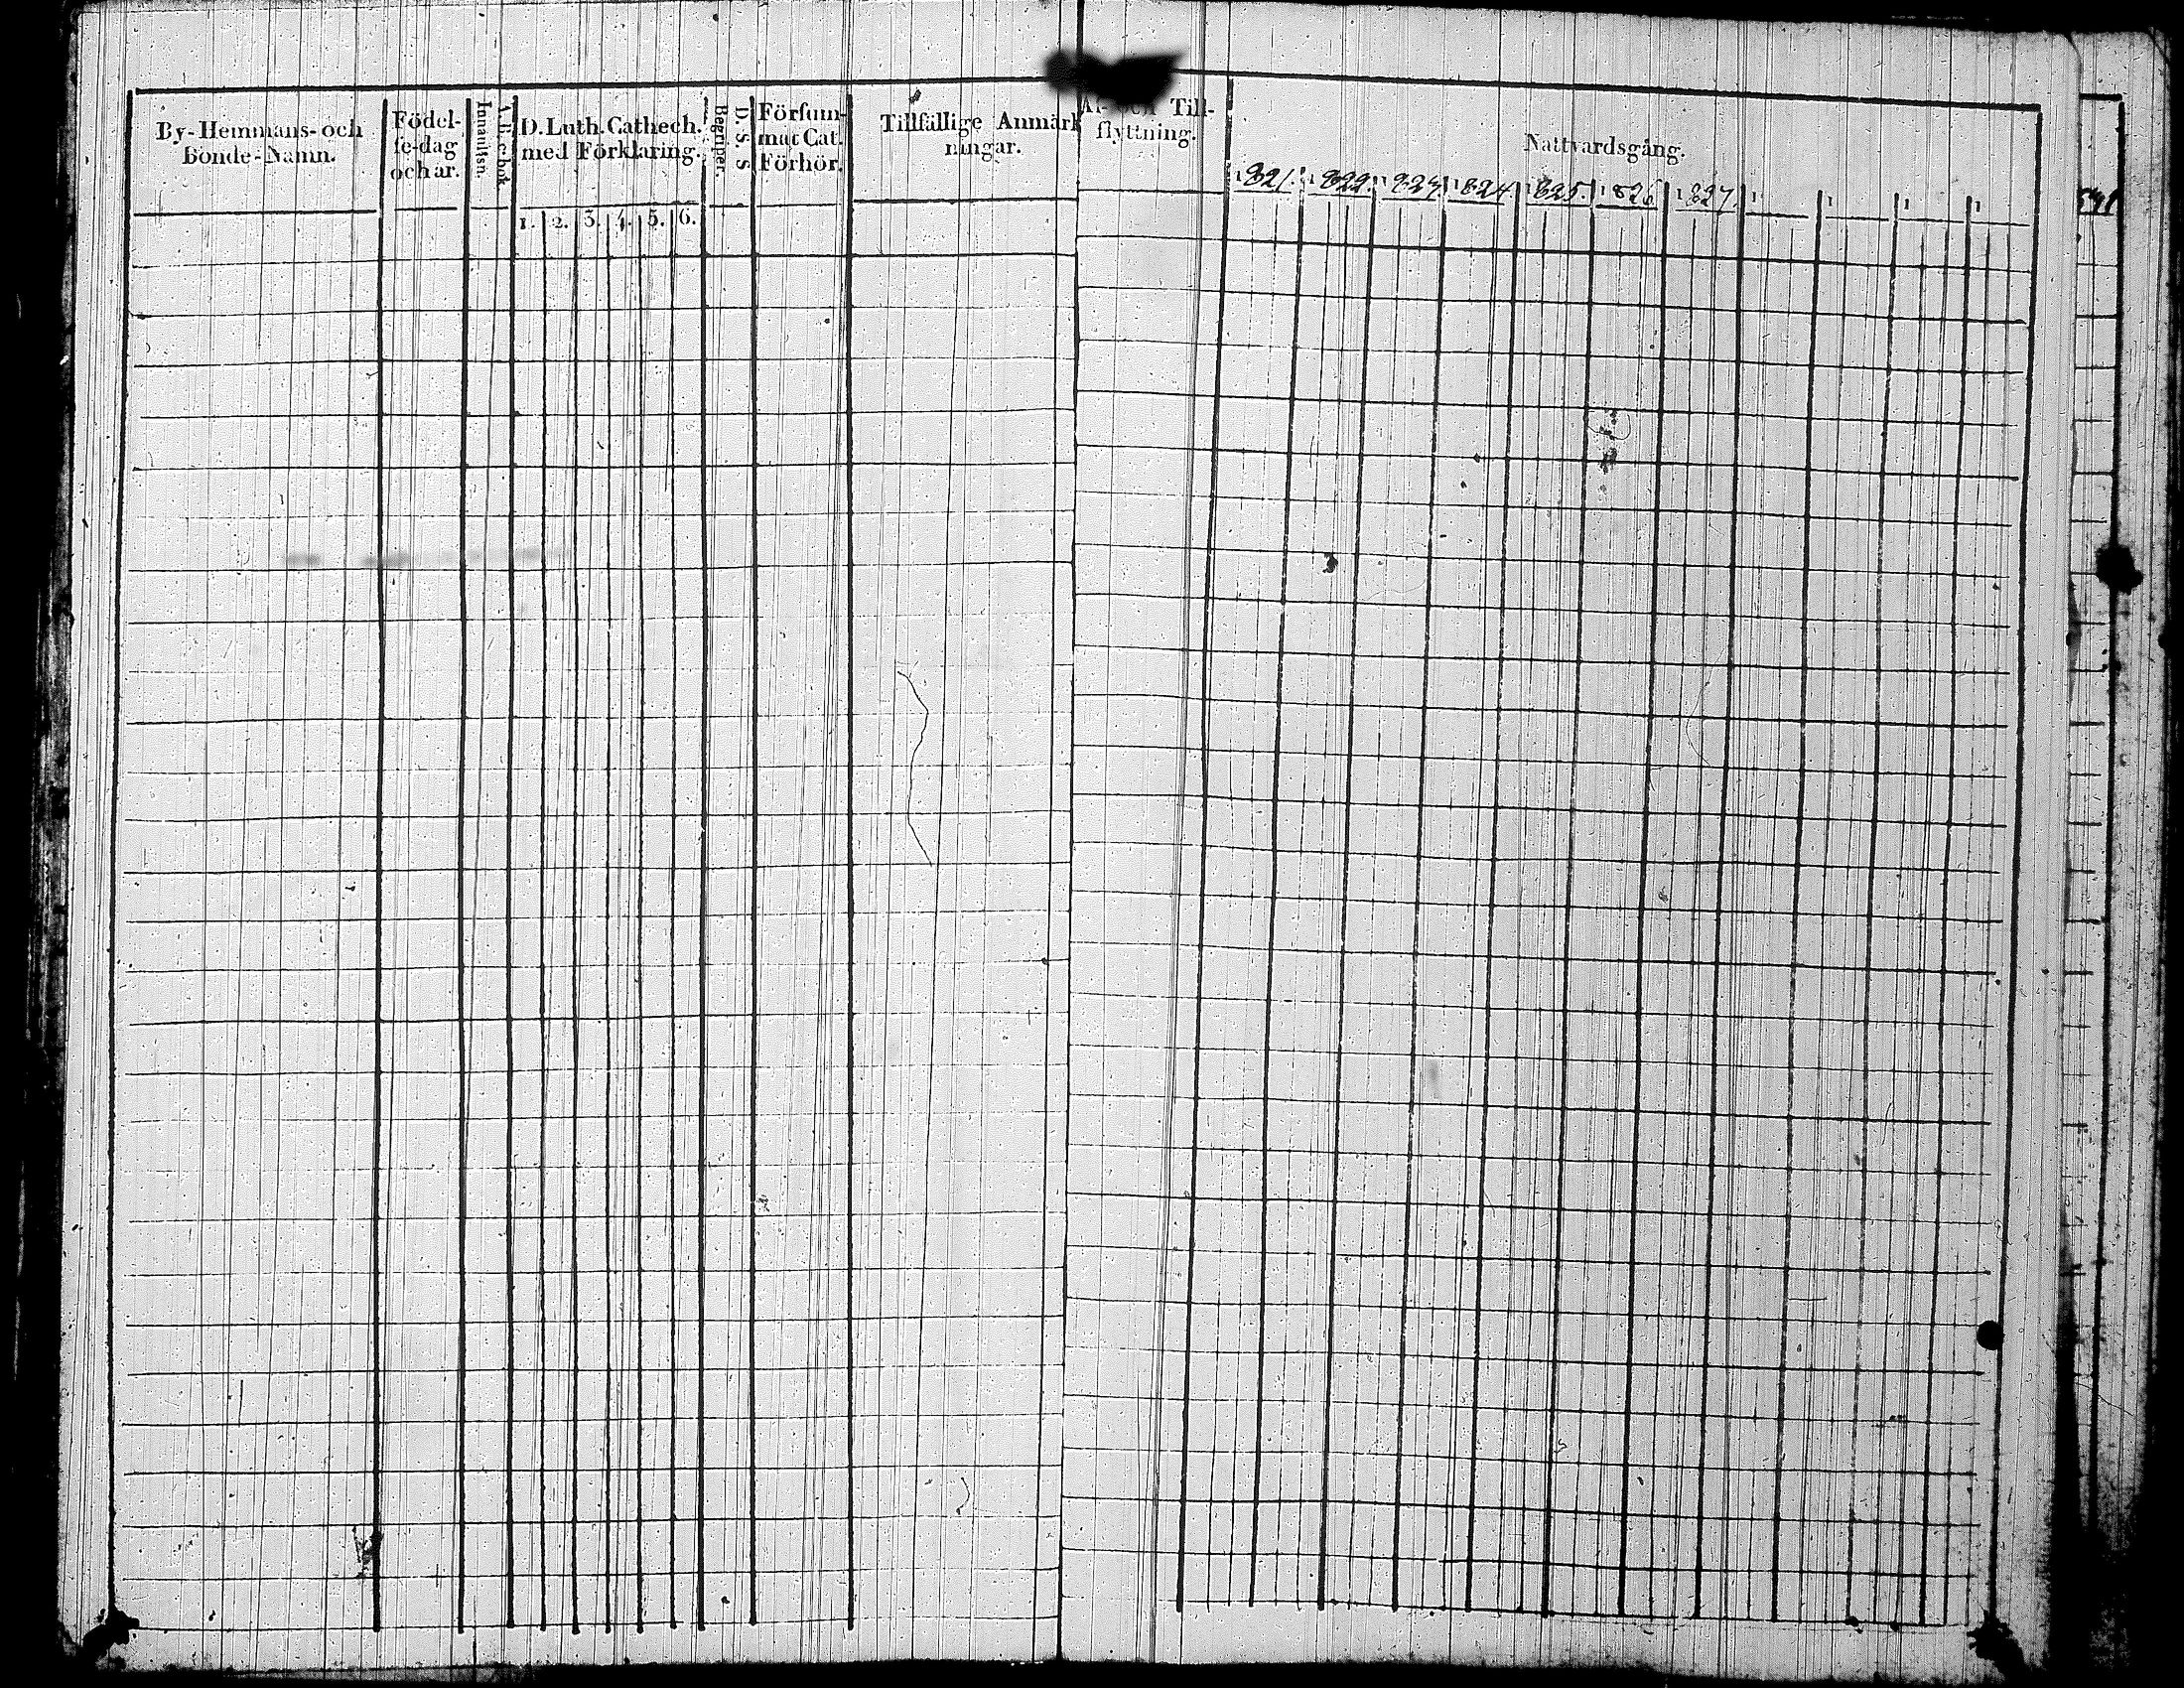 By-Hemmans- och
Bonde-Namn.
Födel-
se-dag
och år.
Innanläsn.
A. b. c. bok
D. Luth. Cathech.
med Förklaring.
1. 2. 3. 4. 5. 6.
Begriper.
D. S. S
Försum-
mat Cat.
Förhör.
Tillfällige Anmärk
ningar.
och Till-
flyttning.
Nattvardsgång.
1821. 1822. 1823. 1824. 1825. 1826 1827. 1 1 1 1